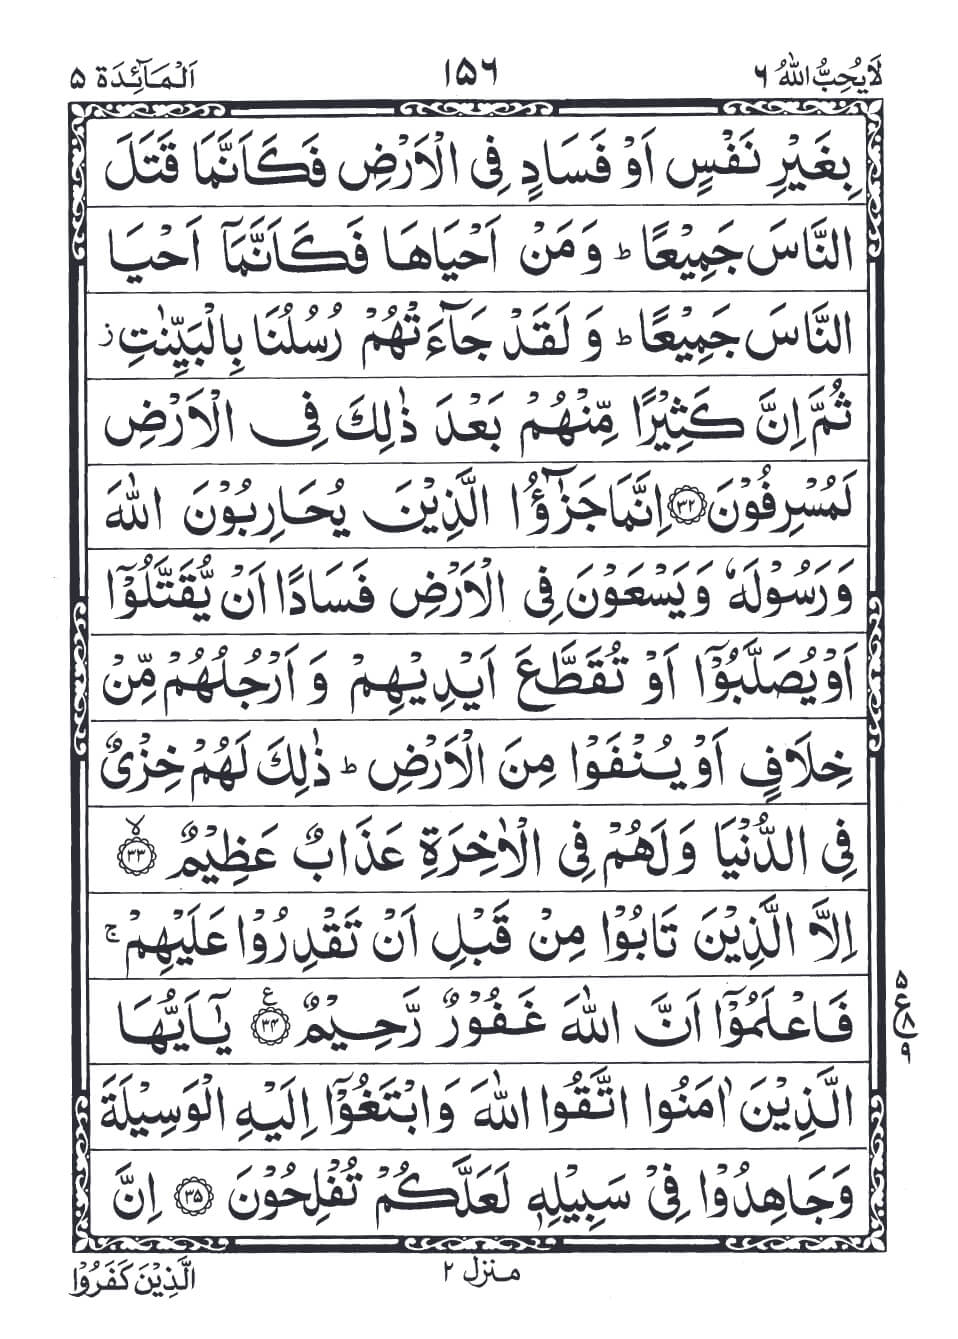 لَا يُحِبُّ اللهُ ٦
١٥٦
اَلْمَآئِدَة ٥
بِغَيْرِ نَفْسٍ اَوْ فَسَادٍ فِى الْاَرْضِ فَكَاَنَّمَا قَتَلَ
النَّاسَ جَمِيْعًا ؕ وَ مَنْ اَحْيَاهَا فَكَاَنَّمَاۤ اَحْيَا
النَّاسَ جَمِيْعًا ؕ وَ لَقَدْ جَآءَتْهُمْ رُسُلُنَا بِالْبَيِّنٰتِ ز
ثُمَّ اِنَّ كَثِيْرًا مِّنْهُمْ بَعْدَ ذٰلِكَ فِى الْاَرْضِ
لَمُسْرِفُوْنَ ۝٣٢ اِنَّمَا جَزٰٓؤُا الَّذِيْنَ يُحَارِبُوْنَ اللهَ
وَ رَسُوْلَهٗ وَ يَسْعَوْنَ فِى الْاَرْضِ فَسَادًا اَنْ يُّقَتَّلُوْۤا
اَوْ يُصَلَّبُوْۤا اَوْ تُقَطَّعَ اَيْدِيْهِمْ وَ اَرْجُلُهُمْ مِّنْ
خِلَافٍ اَوْ يُنْفَوْا مِنَ الْاَرْضِ ؕ ذٰلِكَ لَهُمْ خِزْىٌ
فِى الدُّنْيَا وَ لَهُمْ فِى الْاٰخِرَةِ عَذَابٌ عَظِيْمٌ ۝٣٣ۙ
اِلَّا الَّذِيْنَ تَابُوْا مِنْ قَبْلِ اَنْ تَقْدِرُوْا عَلَيْهِمْ ۚ
فَاعْلَمُوْۤا اَنَّ اللهَ غَفُوْرٌ رَّحِيْمٌ ۝٣٤ ع يٰۤاَيُّهَا
٥
ع
٨
٩
الَّذِيْنَ اٰمَنُوا اتَّقُوا اللهَ وَ ابْتَغُوْۤا اِلَيْهِ الْوَسِيْلَةَ
وَ جَاهِدُوْا فِىْ سَبِيْلِهٖ لَعَلَّكُمْ تُفْلِحُوْنَ ۝٣٥ اِنَّ
منزل ٢
الَّذِيْنَ كَفَرُوْا